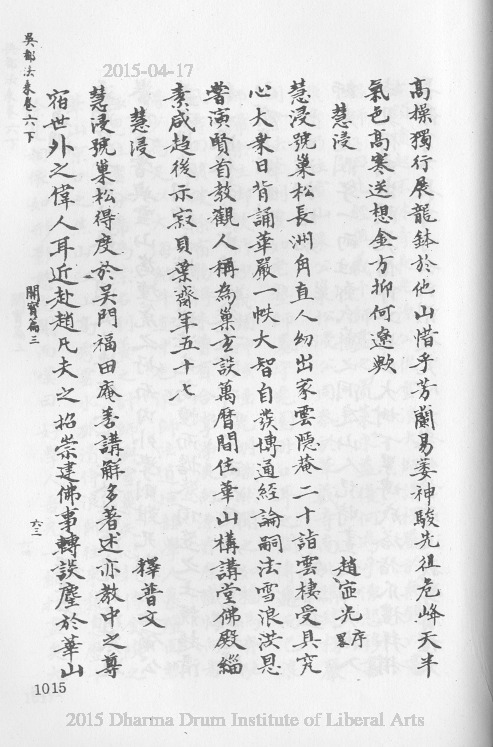 高操獨行展龍鉢於他山惜乎芳蘭易萎神駿先徂危峰天半
氣色高寒送想金方抑何遼歟
慧浸 趙宧光 序畧
慧浸號巢松長洲甪直人幼出家雲隱菴二十詣雲棲受具究
心大乘日背誦華嚴一帙大智自發博通經論嗣法雪浪洪恩
嘗演賢首教觀人稱為巢玄談萬曆間住華山構講堂佛殿緇
素咸趍後示寂貝葉齋年五十七
慧浸 釋普文
慧浸號巢松得度於吳門福田庵善講解多著述亦教中之尊
宿世外之偉人耳近赴趙凡夫之招崇建佛事轉談麈於華山
吳都法乘卷六下
闡實篇三
六三
1015
2015-04-17
2015 Dharma Drum Institute of Liberal Arts